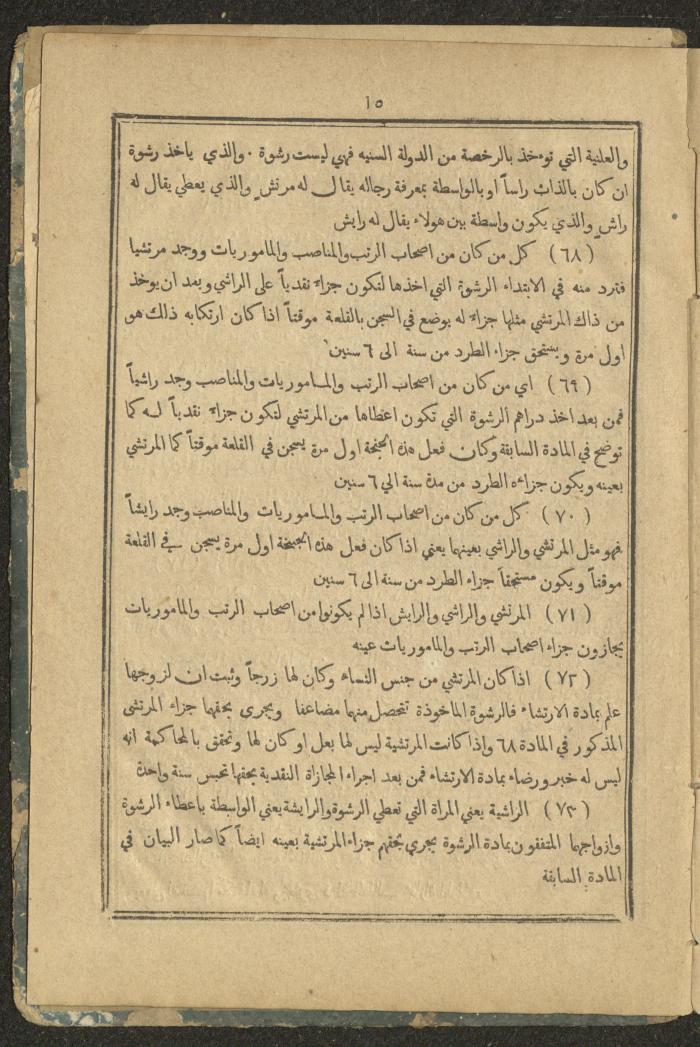 ١٥
والعلنية التي توءخذ بالرخصة من الدولة السنيه فهي ليست رشوة . والذي ياخذ رشوة
ان كان بالذات راساً او بالواسطة بمعرفة رجاله يقال له مرتش والذي يعطي يقال له
راش والذي يكون واسطة بين هولاء يقال له رايش
( ٦٨ ) كل من كان من اصحاب الرتب والمناصب والماموريات ووجد مرتشيا
فترد منه في الابتداء الرشوة التي اخذها لتكون جزاء نقدياً على الراشي وبعد ان يوخذ
من ذاك المرتشي مثلها جزاء له يوضع في السجن بالقلعة موقتاً اذا كان ارتكابه ذلك هو
اول مرة ويستحق جزاء الطرد من سنة الى ٦ سنين
( ٦٩ ) اي من كان من اصحاب الرتب والماموريات والمناصب وجد راشياً
فمن بعد اخذ دراهم الرشوة التي تكون اعطاها من المرتشي لتكون جزاء نقدياً له كما
توضح في المادة السابقة وكان فعل هذه الجنحة اول مرة يسجن في القلعة موقتاً كما المرتشي
بعينه ويكون جزاءه الطرد من مدة سنة الي ٦ سنين
( ٧٠ ) كل من كان من اصحاب الرتب والماموريات والمناصب وجد رايشاً
فهو مثل المرتشي والراشي بعينهما يعني اذا كان فعل هذه الجنحة اول مرة يسجن في القلعة
موقتاً ويكون مستحقاً جزاء الطرد من سنة الى ٦ سنين
( ٧١ ) المرتشي والراشي والرايش اذا لم يكونوا من اصحاب الرتب والماموريات
يجازون جزاء اصحاب الرتب والماموريات عينه
( ٧٢ ) اذا كان المرتشي من جنس النساء وكان لها زرجاً وثبت ان لزوجها
علم بمادة الارتشاء فالرشوة الماخوذة تتحصل منهما مضاعفا ويجرى بحقهما جزاء المرتشى
المذكور في المادة ٦٨ واذا كانت المرتشية ليس لها بعل او كان لها وتحقق بالمحاكمة انه
ليس له خبر ورضاء بمادة الارتشاء فمن بعد اجراء المجازاة النقدية بحقها تحبس سنة واحدة
( ٧٣ ) الراشية يعني المراة التي تعطي الرشوة والرايشة يعني الواسطة باعطاء الرشوة
وازواجهما المتفقون بمادة الرشوة يجري بحقهم جزاء المرتشية بعينه ايضاً كما صار البيان في
المادة السابقة